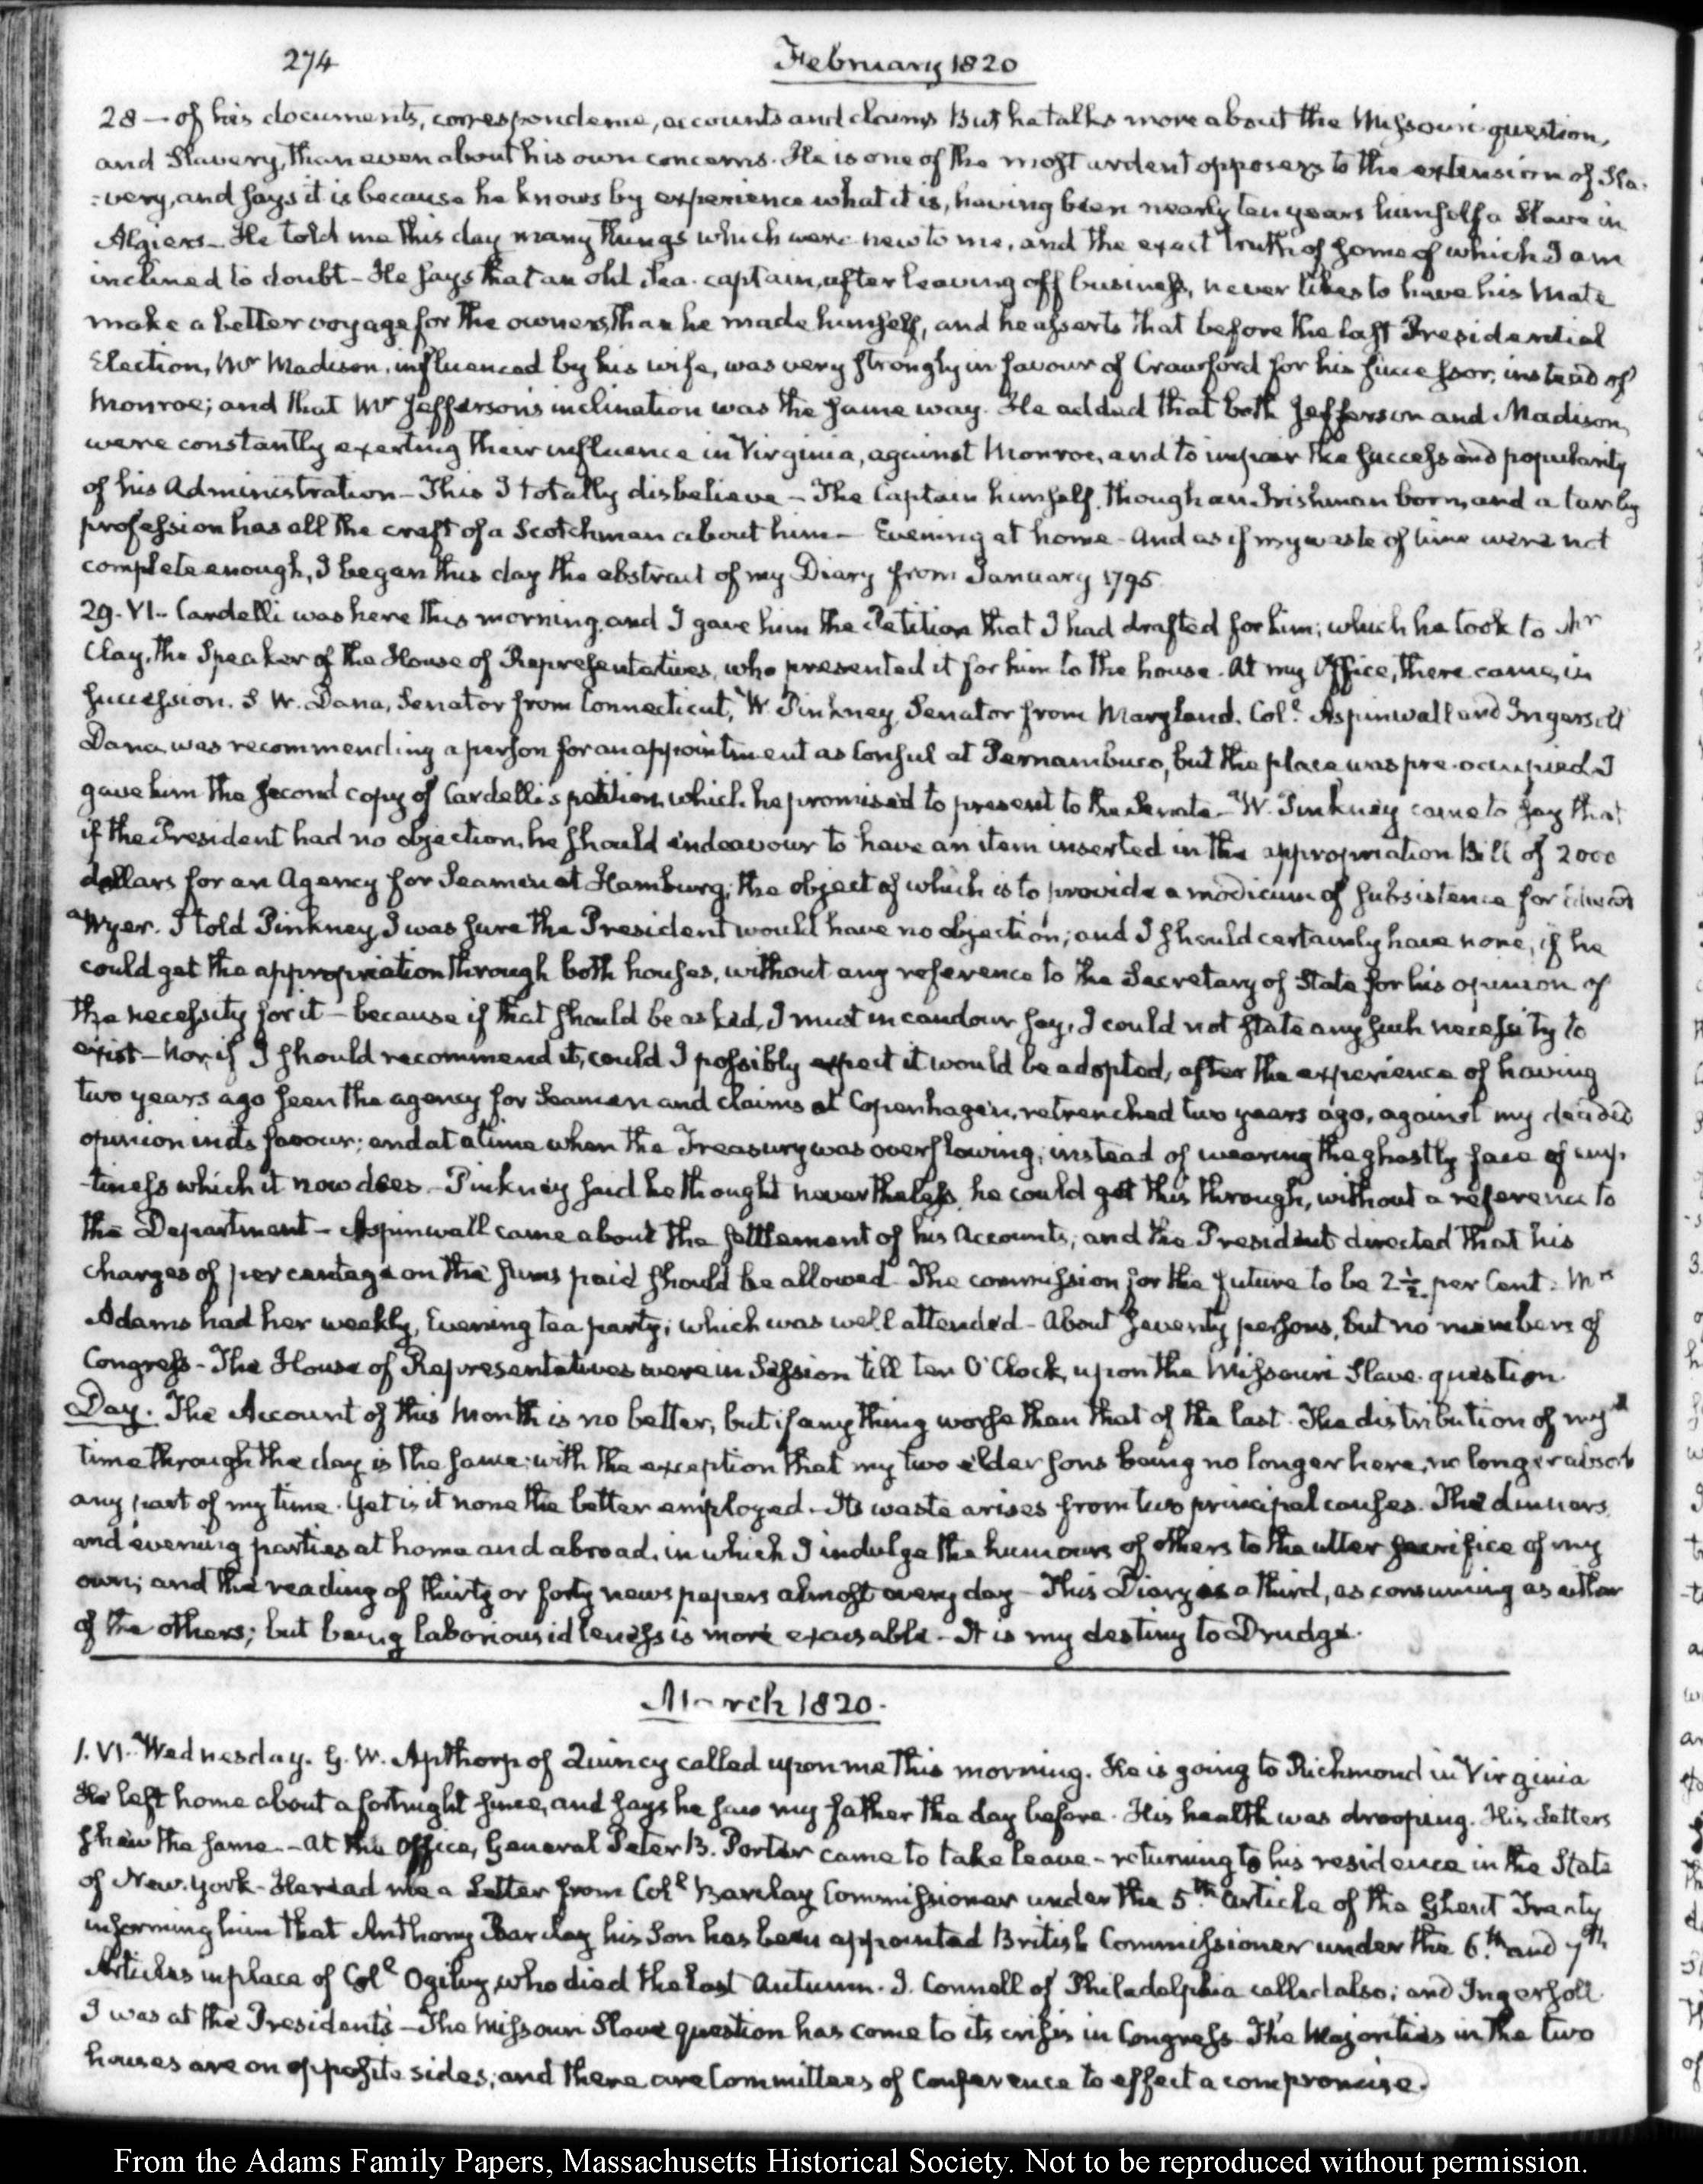 274
February 1820
28 — of his documents, correspondence, accounts and claims But he talks more about the Missouri question,
and Slavery, than even about his own concerns. He is one of the most ardent opposers to the extension of Sla-
:very, and says it is because he knows by experience what it is, having been nearly ten years himself a Slave in
Algiers — He told me this day many things which were new to me, and the exact truth of some of which I am
inclined to doubt — He says that an old Sea-captain, after leaving off business, never likes to have his Mate
make a better voyage for the owners, than he made himself, and he asserts that before the last Presidential
Election, Mr Madison, influenced by his wife, was very strongly in favour of Crawford for his successor, instead of
Monroe; and that Mr Jefferson's inclination was the same way. He added that both Jefferson and Madison,
were constantly exerting their influence in Virginia, against Monroe, and to impair the success and popularity
of his Administration — This I totally disbelieve — The Captain himself, though an Irishman born, and a tar by
profession has all the craft of a Scotchman about him — Evening at home — And as if my waste of time were not
complete enough, I began this day the abstract of my Diary from January 1795
29. VI.. Cardelli was here this morning, and I gave him the Petition that I had drafted for him; which he took to Mr
Clay, the Speaker of the House of Representatives, who presented it for him to the house. At my Office, there came, in
succession. S. W. Dana, Senator from Connecticut, W. Pinkney Senator from Maryland. Coll. Aspinwall and Ingersoll
Dana was recommending a person for an appointment as Consul at Pernambuco, but the place was pre-occupied I
gave him the second copy of Cardelli's petition, which he promised to present to the Senate — W. Pinkney came to say that
if the President had no objection, he should endeavour to have an item inserted in the appropriation Bill of 2000
dollars for an Agency for Seamen at Hamburg; the object of which is to provide a modicum of subsistence for Edward
Wyer. I told Pinkney I was sure the President would have no objection; and I should certainly have none, if he
could get the appropriation through both houses, without any reference to the Secretary of State for his opinion of
the necessity for it — because if that should be asked, I must in candour say, I could not state any such necessity to
exist — Nor, if I should recommend it, could I possibly expect it would be adopted, after the experience of having
two years ago seen the agency for Seamen and claims at Copenhagen, retrenched two years ago, against my decided
opinion in its favour; and at a time when the Treasury was overflowing, instead of wearing the ghastly face of emp-
-tiness which it now does — Pinkney said he thought nevertheless, he could get this through, without a reference to
the Department — Aspinwall came about the settlement of his Accounts; and the President directed that his
charges of per centage on the sums paid should be allowed — The commission for the future to be 2½ per Cent. Mrs
Adams had her weekly, Evening tea party; which was well attended — About seventy persons, but no members of
Congress — The House of Representatives were in Session till ten O'Clock, upon the Missouri Slave-question.
Day. The Account of this Month is no better, but if any thing worse than that of the last. The distribution of my
time through the day is the same: with the exception that my two elder sons being no longer here, no longer absorb
any part of my time. Yet is it none the better employed — Its waste arises from two principal causes. The dinners
and evening parties at home and abroad, in which I indulge the humours of others to the utter sacrifice of my
own; and the reading of thirty or forty newspapers almost every day — This Diary is a third, as consuming as either
of the others; but being laborious idleness is more excusable — It is my destiny to Drudge.
March 1820.
1. VI. Wednesday. G. W. Apthorp of Quincy called upon me this morning. He is going to Richmond in Virginia
He left home about a fortnight since, and says he saw my father the day before. His health was drooping. His Letters
shew the same — At the Office, General Peter B. Porter came to take leave — returning to his residence in the State
of New-York — He read me a Letter from Coll. Barclay Commissioner under the 5th. Article of the Ghent Treaty
informing him that Anthony Barclay his Son has been appointed British Commissioner under the 6.th and 7.th
Articles in place of Coll. Ogilvy, who died the last Autumn. J. Connell of Philadelphia called also; and Ingersoll.
I was at the President's — The Missouri Slave question has come to its crisis in Congress The Majorities in the two
houses are on opposite sides, and there are Committees of Conference to effect a compromise.
From the Adams Family Papers, Massachusetts Historical Society. Not to be reproduced without permission.